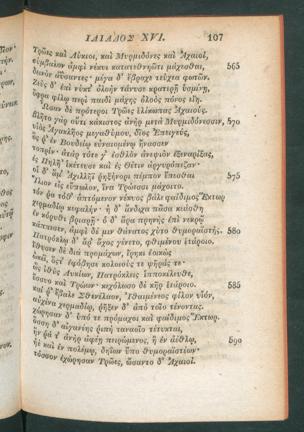 ΙΛΙΑΔΟΣ XVI. 107
Τρῶες καὶ Λύκιοι, καὶ Μυρμιδόνες καὶ Ἀχαιοί,
σύμβαλον ἀμφὶ νέκυι κατατεθνηῶτι μάχεσθαι, 565
δεινὸν ἀΰσαντες· μέγα δ' ἔβραχε τεύχεα φωτῶν.
Ζεὺς δ' ἐπὶ νύκτ' ὀλοὴν τάνυσε κρατερῇ ὑσμίνῃ,
ὄφρα φίλῳ περὶ παιδὶ μάχης ὀλοὸς πόνος εἴη.
Ὦσαν δὲ πρότεροι Τρῶες ἑλίκωπας Ἀχαιούς.
βλῆτο γὰρ οὔτι κάκιστος ἀνὴρ μετὰ Μυρμιδόνεσσιν, 570
υἱὸς Ἀγακλῆος μεγαθύμου, δῖος Ἐπειγεύς,
ὅς ῥ' ἐν Βουδείῳ εὐναιομένῳ ἤνασσεν
τοπρίν· ἀτὰρ τότε γ' ἐσθλὸν ἀνεψιὸν ἐξεναρίξας,
ἐς Πηλῆ' ἱκέτευσε καὶ ἐς Θέτιν ἀργυρόπεζαν·
οἱ δ' ἅμ' Ἀχιλλῆϊ ῥηξήνορι πέμπον ἕπεσθαι 575
Ἴλιον εἰς εὔπωλον, ἵνα Τρώεσσι μάχοιτο.
τόν ῥα τόθ' ἁπτόμενον νέκυος βάλε φαίδιμος Ἕκτωρ
χερμαδίῳ κεφαλήν· ἡ δ' ἄνδιχα πᾶσα κεάσθη
ἐν κόρυθι βριαρῇ· ὁ δ' ἄρα πρηνὴς ἐπὶ νεκρῷ
κάππεσεν, ἀμφὶ δέ μιν θάνατος χύτο θυμοραϊστής. 580
Πατρόκλῳ δ' ἄρ' ἄχος γένετο, φθιμένου ἑτάροιο.
ἴθυσεν δὲ διὰ προμάχων, ἴρηκι ἐοικὼς
ὠκέϊ, ὅστ' ἐφόβησε κολοιούς τε ψῆράς τε·
ὣς ἰθὺς Λυκίων, Πατρόκλεις ἱπποκέλευθε,
ἔσσυο καὶ Τρώων· κεχόλωσο δὲ κῆρ ἑτάροιο. 585
καί ῥ' ἔβαλε Σθενέλαον, Ἰθαιμένεος φίλον υἱόν,
αὐχένα χερμαδίῳ, ῥῆξεν δ' ἀπὸ τοῖο τένοντας.
χώρησαν δ' ὑπό τε πρόμαχοι καὶ φαίδιμος Ἕκτωρ.
ὅσση δ' αἰγανέης ῥιπὴ ταναοῖο τέτυκται,
ἥν ῥά τ' ἀνὴρ ἀφέῃ πειρώμενος, ἢ ἐν ἀέθλῳ, 590
ἠὲ καὶ ἐν πολέμῳ, δηΐων ὕπο θυμοραϊστέων·
τόσσον ἐχώρησαν Τρῶες, ὤσαντο δ' Ἀχαιοί.